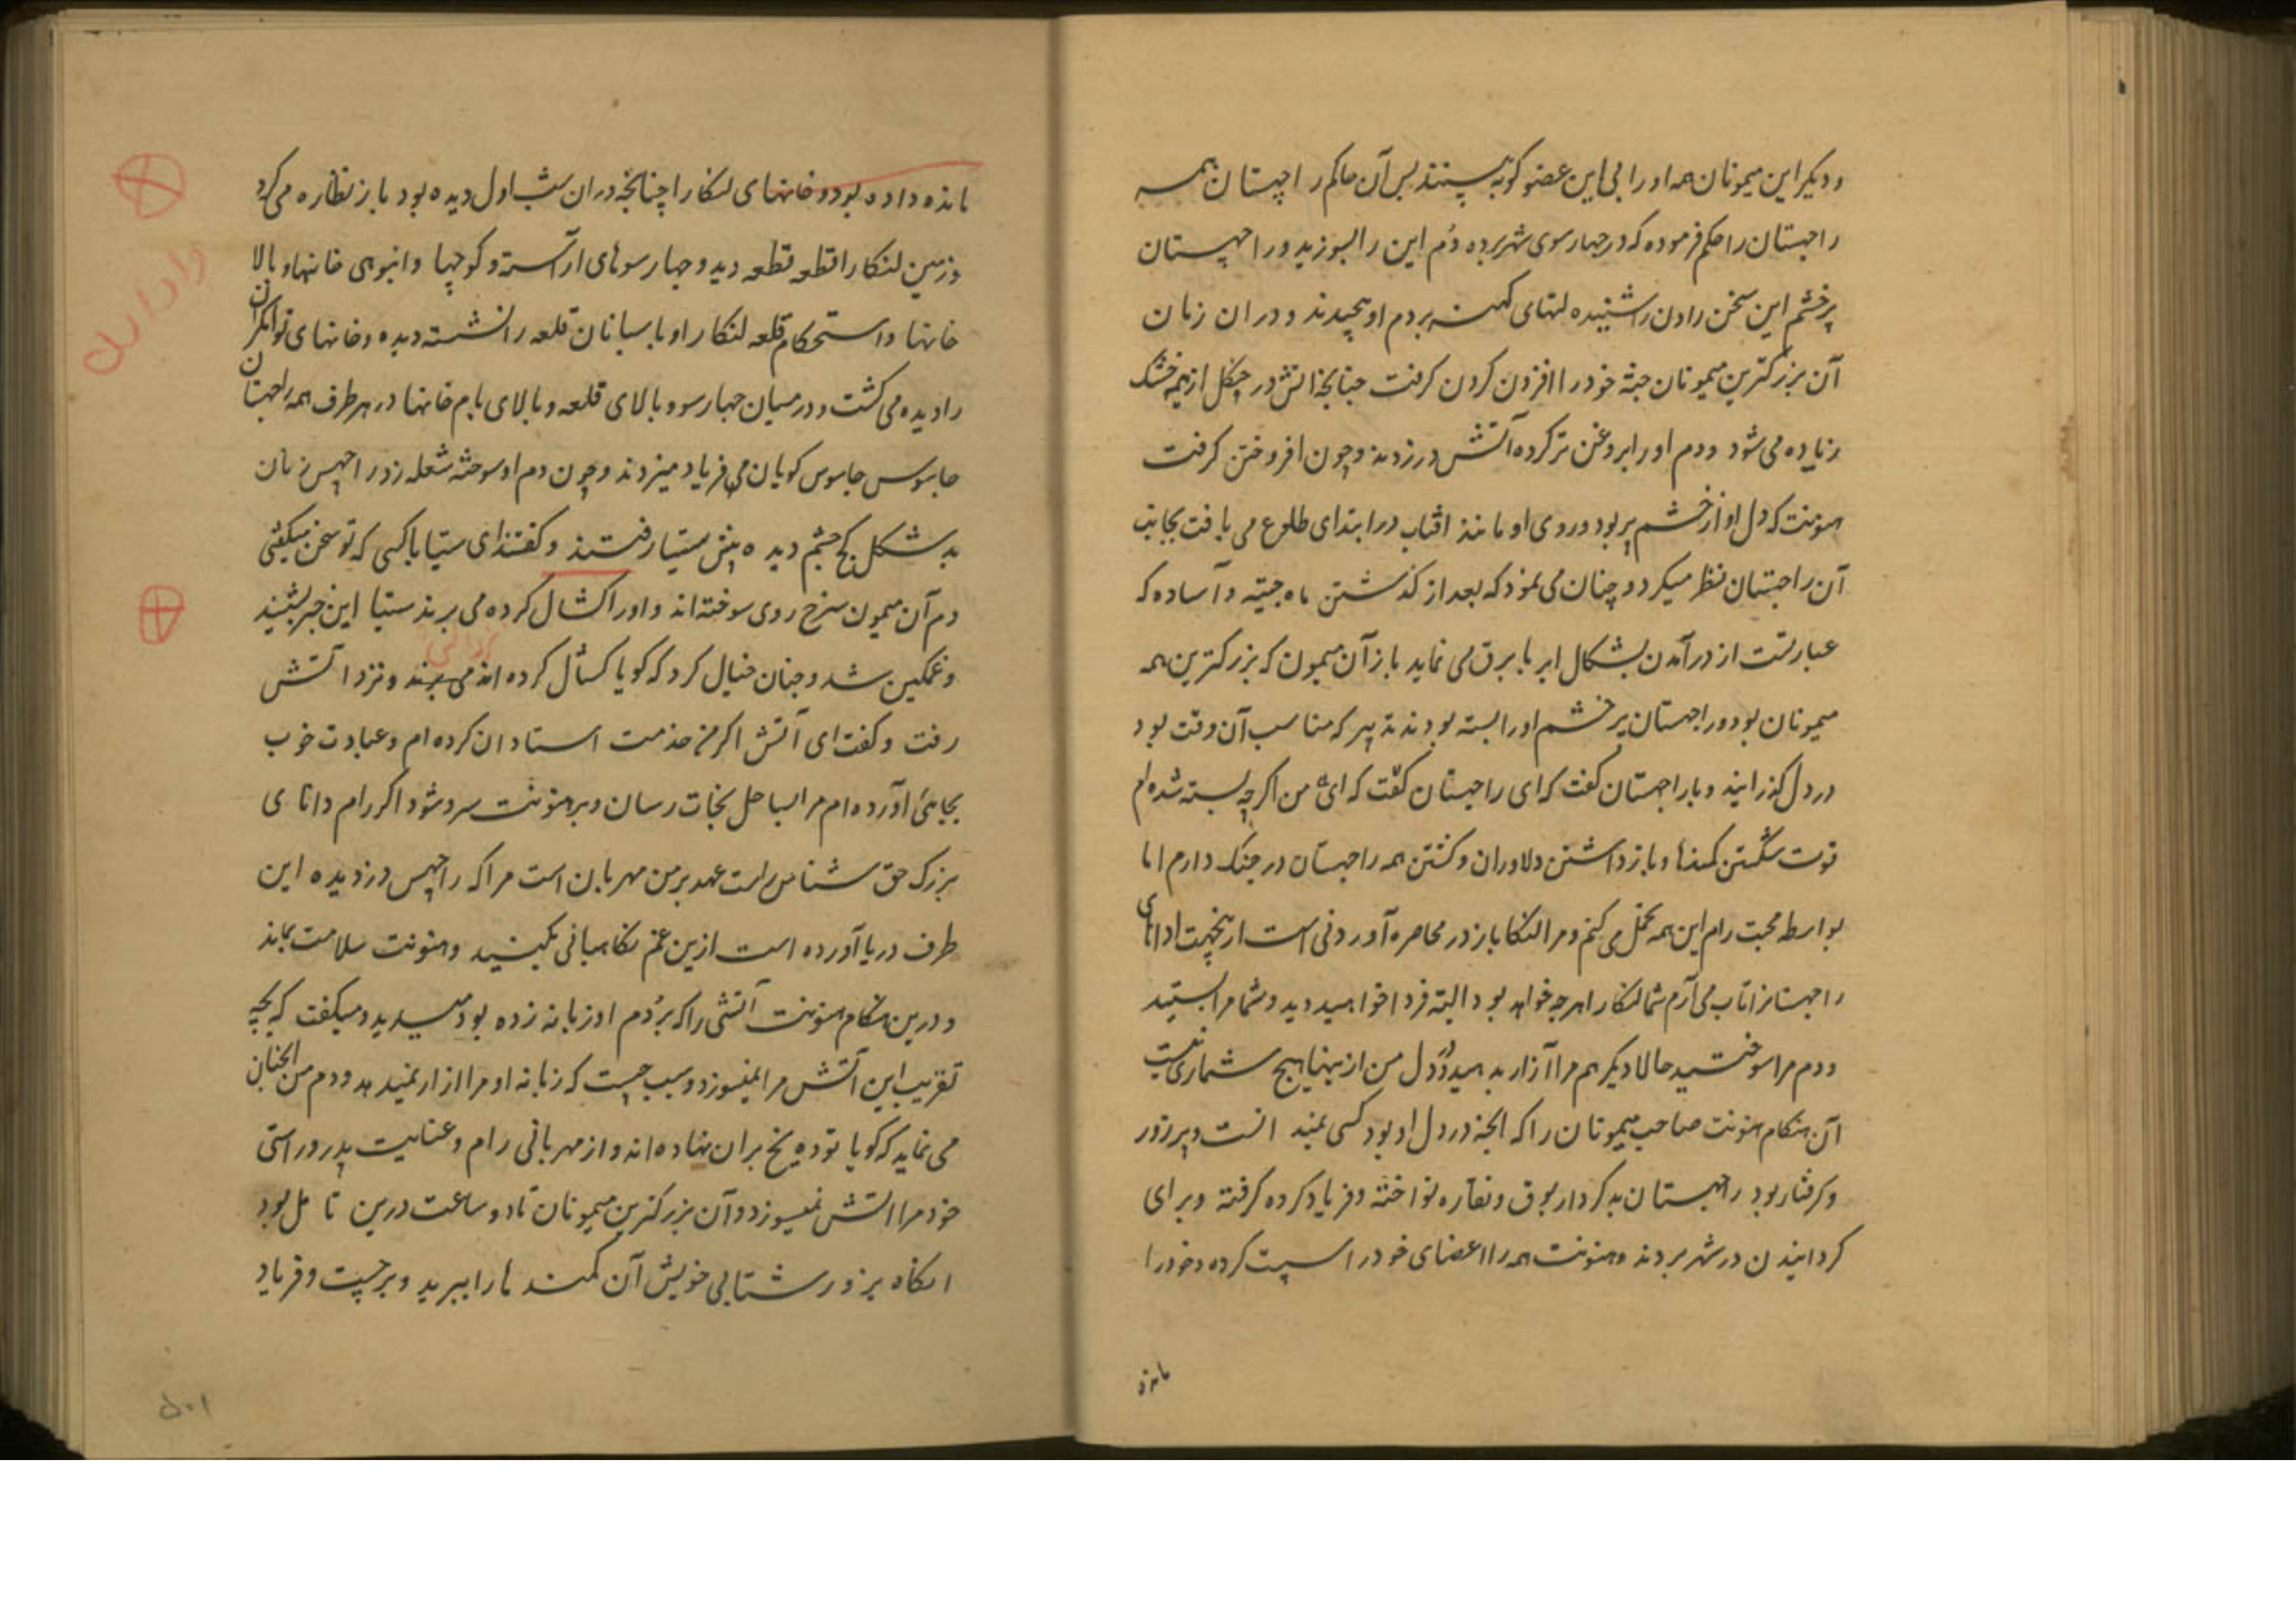 ودیکر این میمونان همه او را بی این عضو کوته پسندند پس آن حاکم راچهستان همه
راجهستان را حکم فرموده که در چهار سوی شهر برده دُم این را بسوزید و راجهستان
پرخشم این سخن راون را شنیده لتهای کهنه بر دم او پیچیدند و در ان زمان
آن بزرکترین میمونان جثه خود را افزون کردن کرفت چنانچه اتش در جنکل از هیمه خشک
زیاده می شود و دم او را بروغن تر کرده آتش در زدند و چون افروختن کرفت
هنونت که دل او از خشم پر بود و روی او مانند افتاب در ابتدای طلوع می یافت بجانب
آن راجهستان نظر میکرد و چنان می نمود که بعد از کذشتن ماه جیته و آساده که
عبارتست از در آمدن بشکال ابر با برق می نماید باز آن میمون که بزرکترین همه
میمونان بود و راجهستان پرخشم او را بسته بودند تدبیر که مناسب آن وقت بود
در دل کذرانید و با راجهستان کفت که ای راجهستان کفت که ای من اکرچه بسته شده ام
قوت شکستن کمندها و باز داشتن دلاوران و کشتن همه راجهستان در جنک دارم اما
بواسطه محبت رام این همه تحمل می کنم و مرا لنکا باز در محاصره آوردنی است ازینجهت اداهای
راجهستانرا تاب می آرم شما لنکا را هرچه خواهد بود البته فردا خواهید دید و شما مرا بستید
و دم مرا سوختید حالا دیکر هم مرا آزار بدهید و در دل من ازینها هیچ شماری نیست
آن هنکام هنونت صاحب میمونان را که انچه در دل او بود کسی نمید انست و پرزور
و کرفتار بود راجهستان بدکردار بوق و نقاره نواخته و فریاد کرده کرفته و برای
کردانیدن در شهر بردند و هنونت همه را اعضای خود را سپت کرده و خود را
مانده
مانده داده بود و خانهای لنکا را چنانچه در ان شب اول دیده بود باز نظاره می کرد
و زمین لنکا را قطعه قطعه دید و چهار سوهای آراسته و کوچها و انبوهی خانها و بالا
خانها و استحکام قلعه لنکا را و پاسبانان قلعه را نشسته دیده و خانهای توانکران
را دیده می کشت و در میان چهار سو و بالای قلعه و بالای بام خانها در هر طرف همه راجهستان
جاسوس جاسوس کویان می فریاد میزدند و چون دم او سوخته شعله زد راچهس زنان
بدشکل کج چشم دیده پیش سیتا رفتند و کفتند ای سیتا با کسی که تو سخن میکفتی
دم آن میمون سرخ روی سوخته اند و او را کشال کرده می برند سیتا این خبر بشنید
و غمکین شد و چنان خیال کرد که کویا کشال کرده اند می برند و نزد آتش
رفت و کفت ای آتش اکر من خدمت استادان کرده ام و عبادت خوب
بجای آورده ام مرا بساحل نجات رسان و بر هنونت سرد شو و اکر رام دانا ی
بزرک حق شناس راست عهد بر من مهربان است مرا که راچهس دزدیده این
طرف دریا آورده است ازین غم نکاهبانی بکنید و هنونت سلامت بماند
و درین هنکام هنونت آتشی را که بر دُم او زبانه زده بود میدید و میکفت که بچه
تقریب این آتش مرا نمیسوزد و سبب چیست که زبانه او مرا ازار نمیدهد و دم من انچنان
می نماید که کویا توده یخ بران نهاده اند و از مهربانی رام و عنایت پدر و راستی
خود مرا آتش نمیسوزد و آن بزرکترین میمونان تا دو ساعت درین تا مل بود
انکاه بزور شتابی خویش آن کمند ها را ببرید و برجست و فریاد
۵۰۱